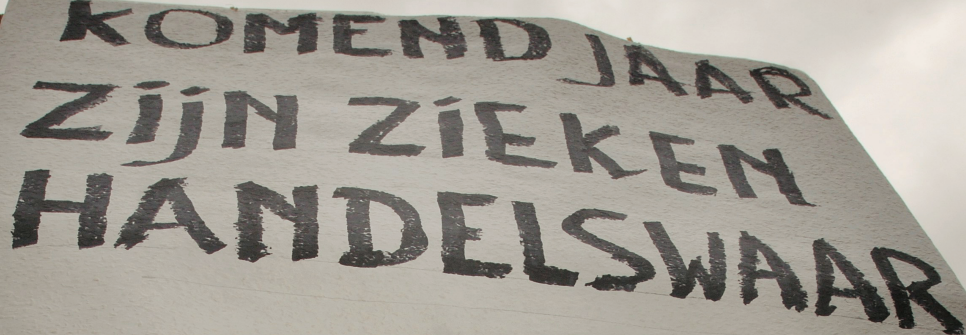 KOMEND JAAR
ZIJN ZIEKEN
HANDELSWAAR